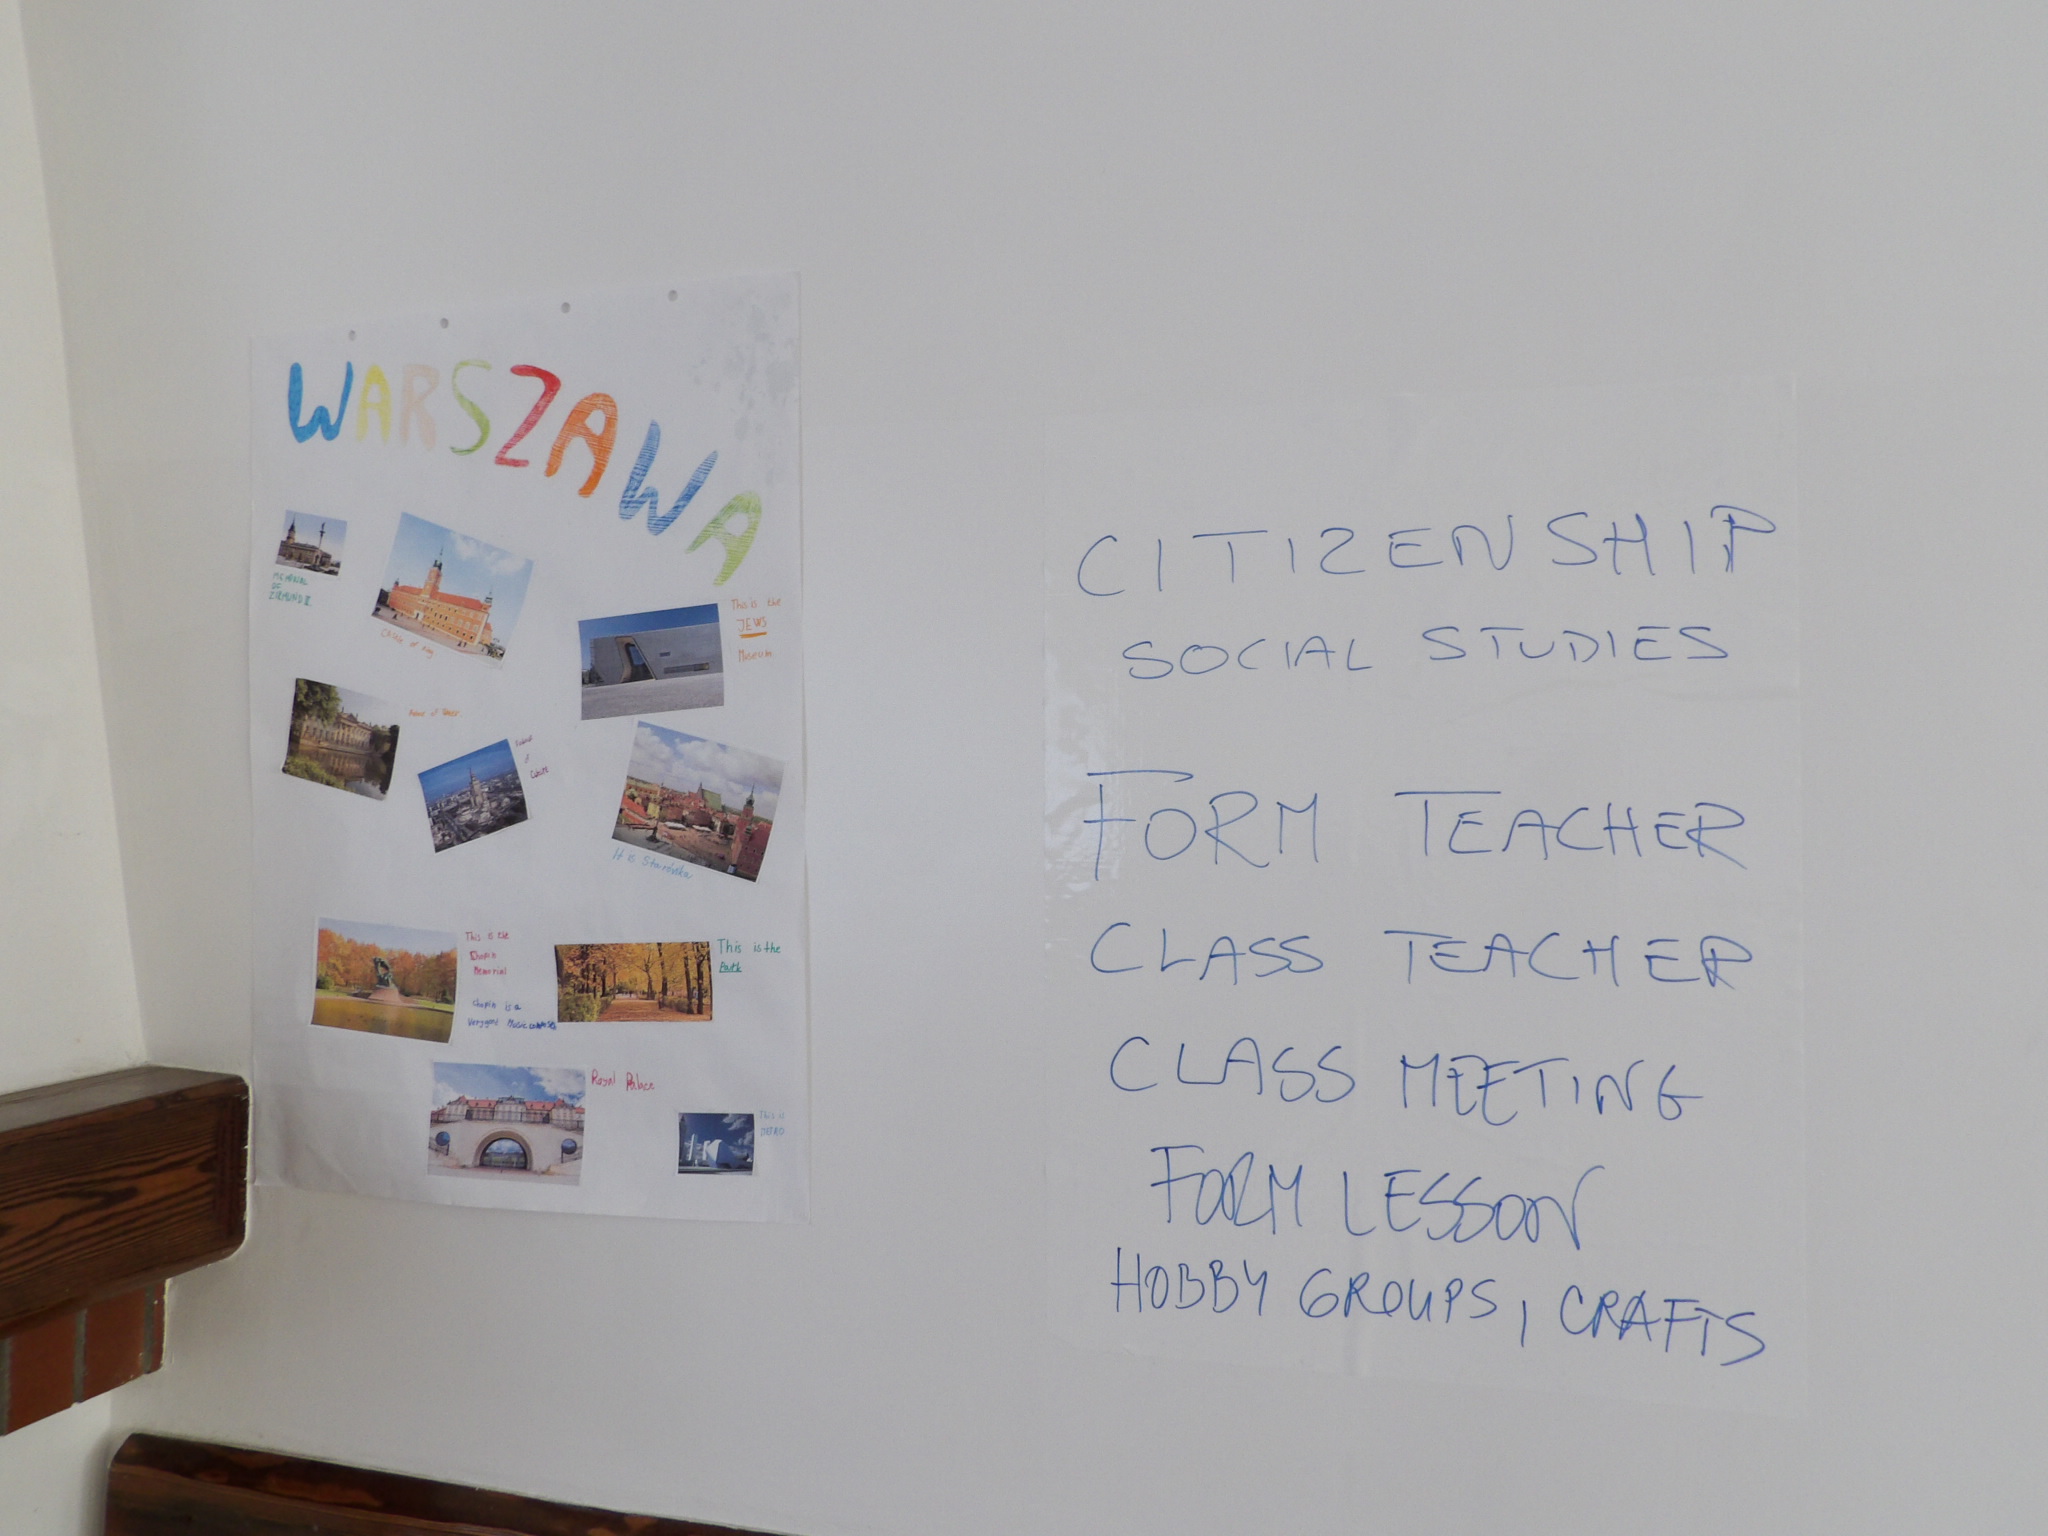 WARSZAWA
MEMORIAL
OF
ZIGMUND III
Castle of king
This is the
JEWS
Museum
Palace of
of
It is Starówka
This is the
Chopin
Memorial
Chopin is a
This is the
Park
Royal Palace
This is
METRO
CITIZENSHIP
SOCIAL STUDIES
FORM TEACHER
CLASS TEACHER
CLASS MEETING
FORM LESSON
HOBBY GROUPS, CRAFTS